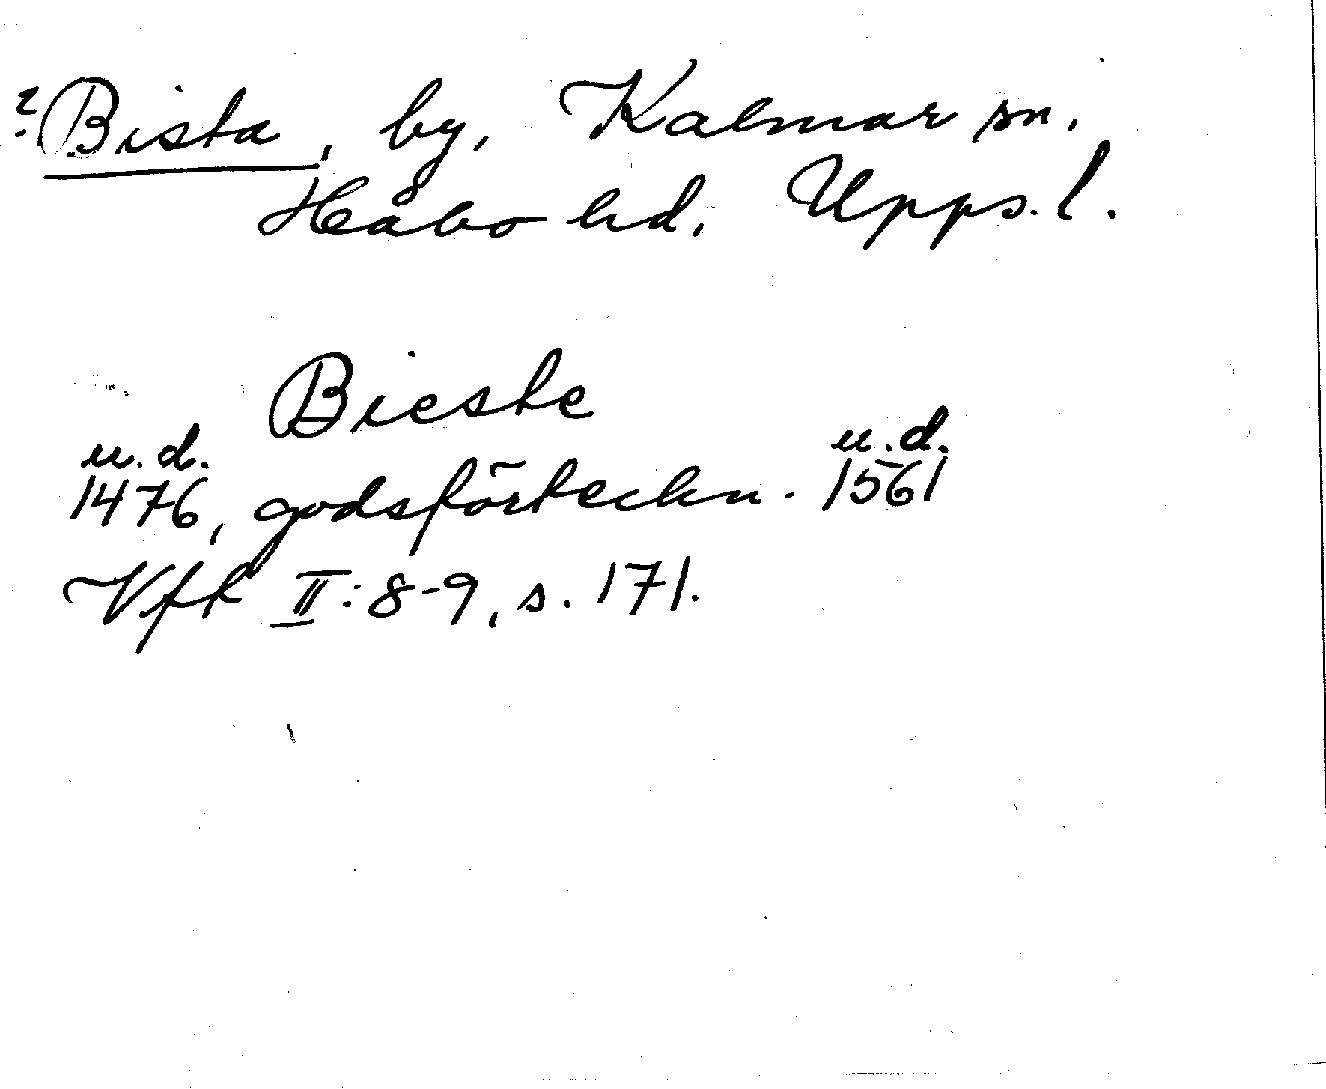 ? Bista, by, Kalmar sn.
Håbo hd. Upps. l.
Bieste
u.d. u.d.
1476, godsförteckn. 1561
Vfk II:8-9, s. 171.